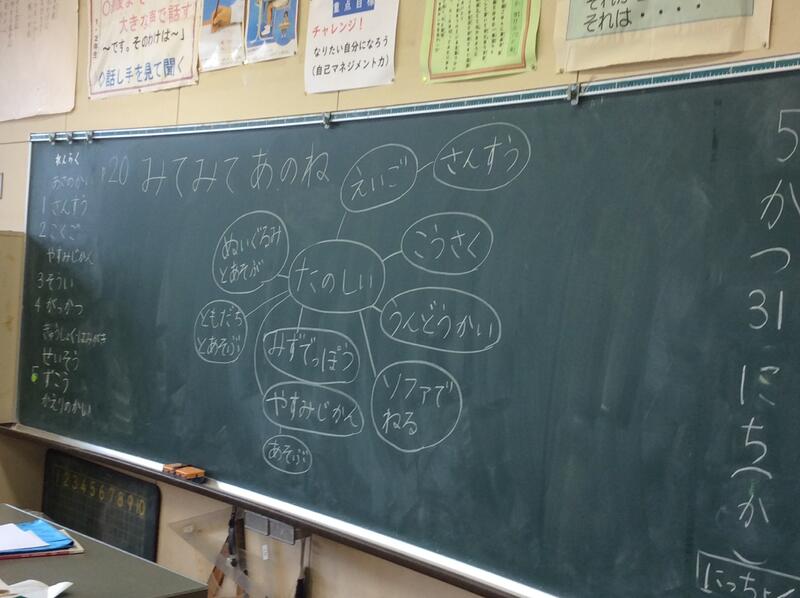 大きな声で話す
～です。そのわけは～」
話し手を見て聞く
重点目標
チャレンジ！
なりたい自分になろう
(自己マネジメント力)
それは・・・・
れんらく
あさのかい
1 さんすう
2 こくご
やすみじかん
3 そうい
4 がっかつ
きゅうしょく・はみがき
せいそう
5 ずこう
かえりのかい
P20 みてみて あのね
えいご
さんすう
ぬいぐるみ
とあそぶ
たのしい
こうさく
ともだち
とあそぶ
みずでっぽう
うんどうかい
やすみじかん
ソファで
ねる
あそぶ
5がつ31にち(か)
にっちょく
1 2 3 4 5 6 7 8 9 10